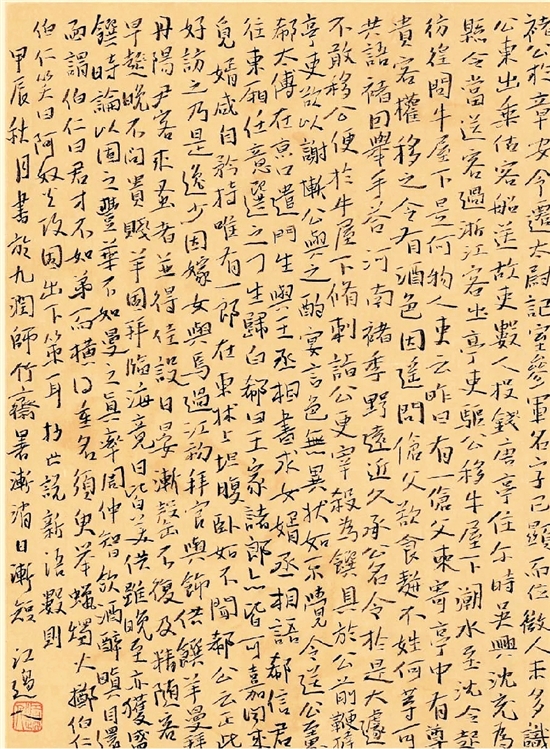 褚公於章安令遷太尉記室參軍名字已顯而位微人未多識
公東出乘估客船送故吏數人投錢唐亭住尔時吳興沈充為
縣令當送客過浙江客出亭吏驅公移牛屋下潮水至沈令起
彷徨問牛屋下是何物人吏云昨日有一傖父來寄亭中有尊
貴客權移之令有酒色因遙問傖父欲食麩不姓何等可
共語褚因舉手答河南褚季野遠近久承公名令於是大遽
不敢移公便於牛屋下脩刺詣公更宰殺為饌具於公前鞭撻
亭吏欲以謝慚公與之酌宴言色無異狀如不覺令送公至界
郗太傅在京口遣門生與王丞相書求女婿丞相語郗信君
往東廂任意選之門生歸白郗曰王家諸郎亦皆可嘉聞來
覓婿咸自矜持唯有一郎在東牀上坦腹卧如不聞郗公云正此
好訪之乃是逸少因嫁女與焉過江初拜官輿飾供饌羊曼拜
丹陽尹客來蚤者並得佳設日晏漸罄不復及精隨客
早晚不問貴賤羊固拜臨海竟日皆美供雖晚至亦獲盛
饌時論以固之豐華不如曼之真率周仲智飲酒醉瞋目還
面謂伯仁曰君才不如弟而橫得重名須臾舉蠟燭火擲伯仁
伯仁笑曰阿奴火攻固出下策耳抄世說新語數則
甲辰秋月書於九潤師竹齋暑漸消日漸短